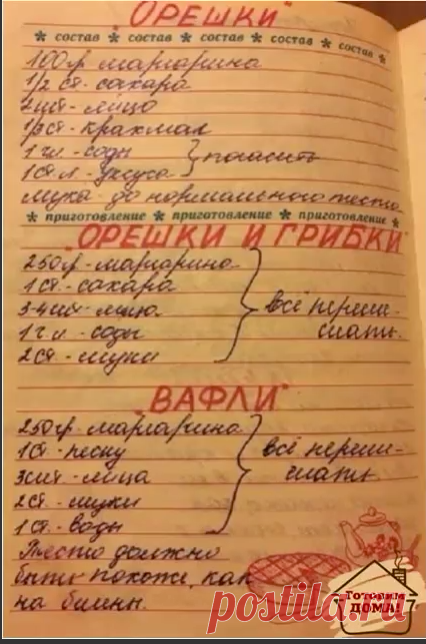 "ОРЕШКИ"
* состав * состав * состав * состав *
100гр маргарина
1/2 ст. сахара
2шт - яйцо
1/3 ст - крахмал
1 ч.л - соды } погасить
1 ст. л - уксуса
мука - до нормального теста
* приготовление * приготовление * приготовление *
"ОРЕШКИ И ГРИБКИ"
250гр - маргарина
1 ст. - сахара
3-4 шт - яйца
1 ч. л - соды
2 ст. - муки
всё переме-
шать.
"ВАФЛИ"
250гр. - маргарина
1 ст. - песку
3 шт - яйца
2 ст. - муки
1 ст. - воды
всё переме-
шать.
Тесто должно
быть похоже, как
на блины.
Готовим
ДОМА!
postila.ru